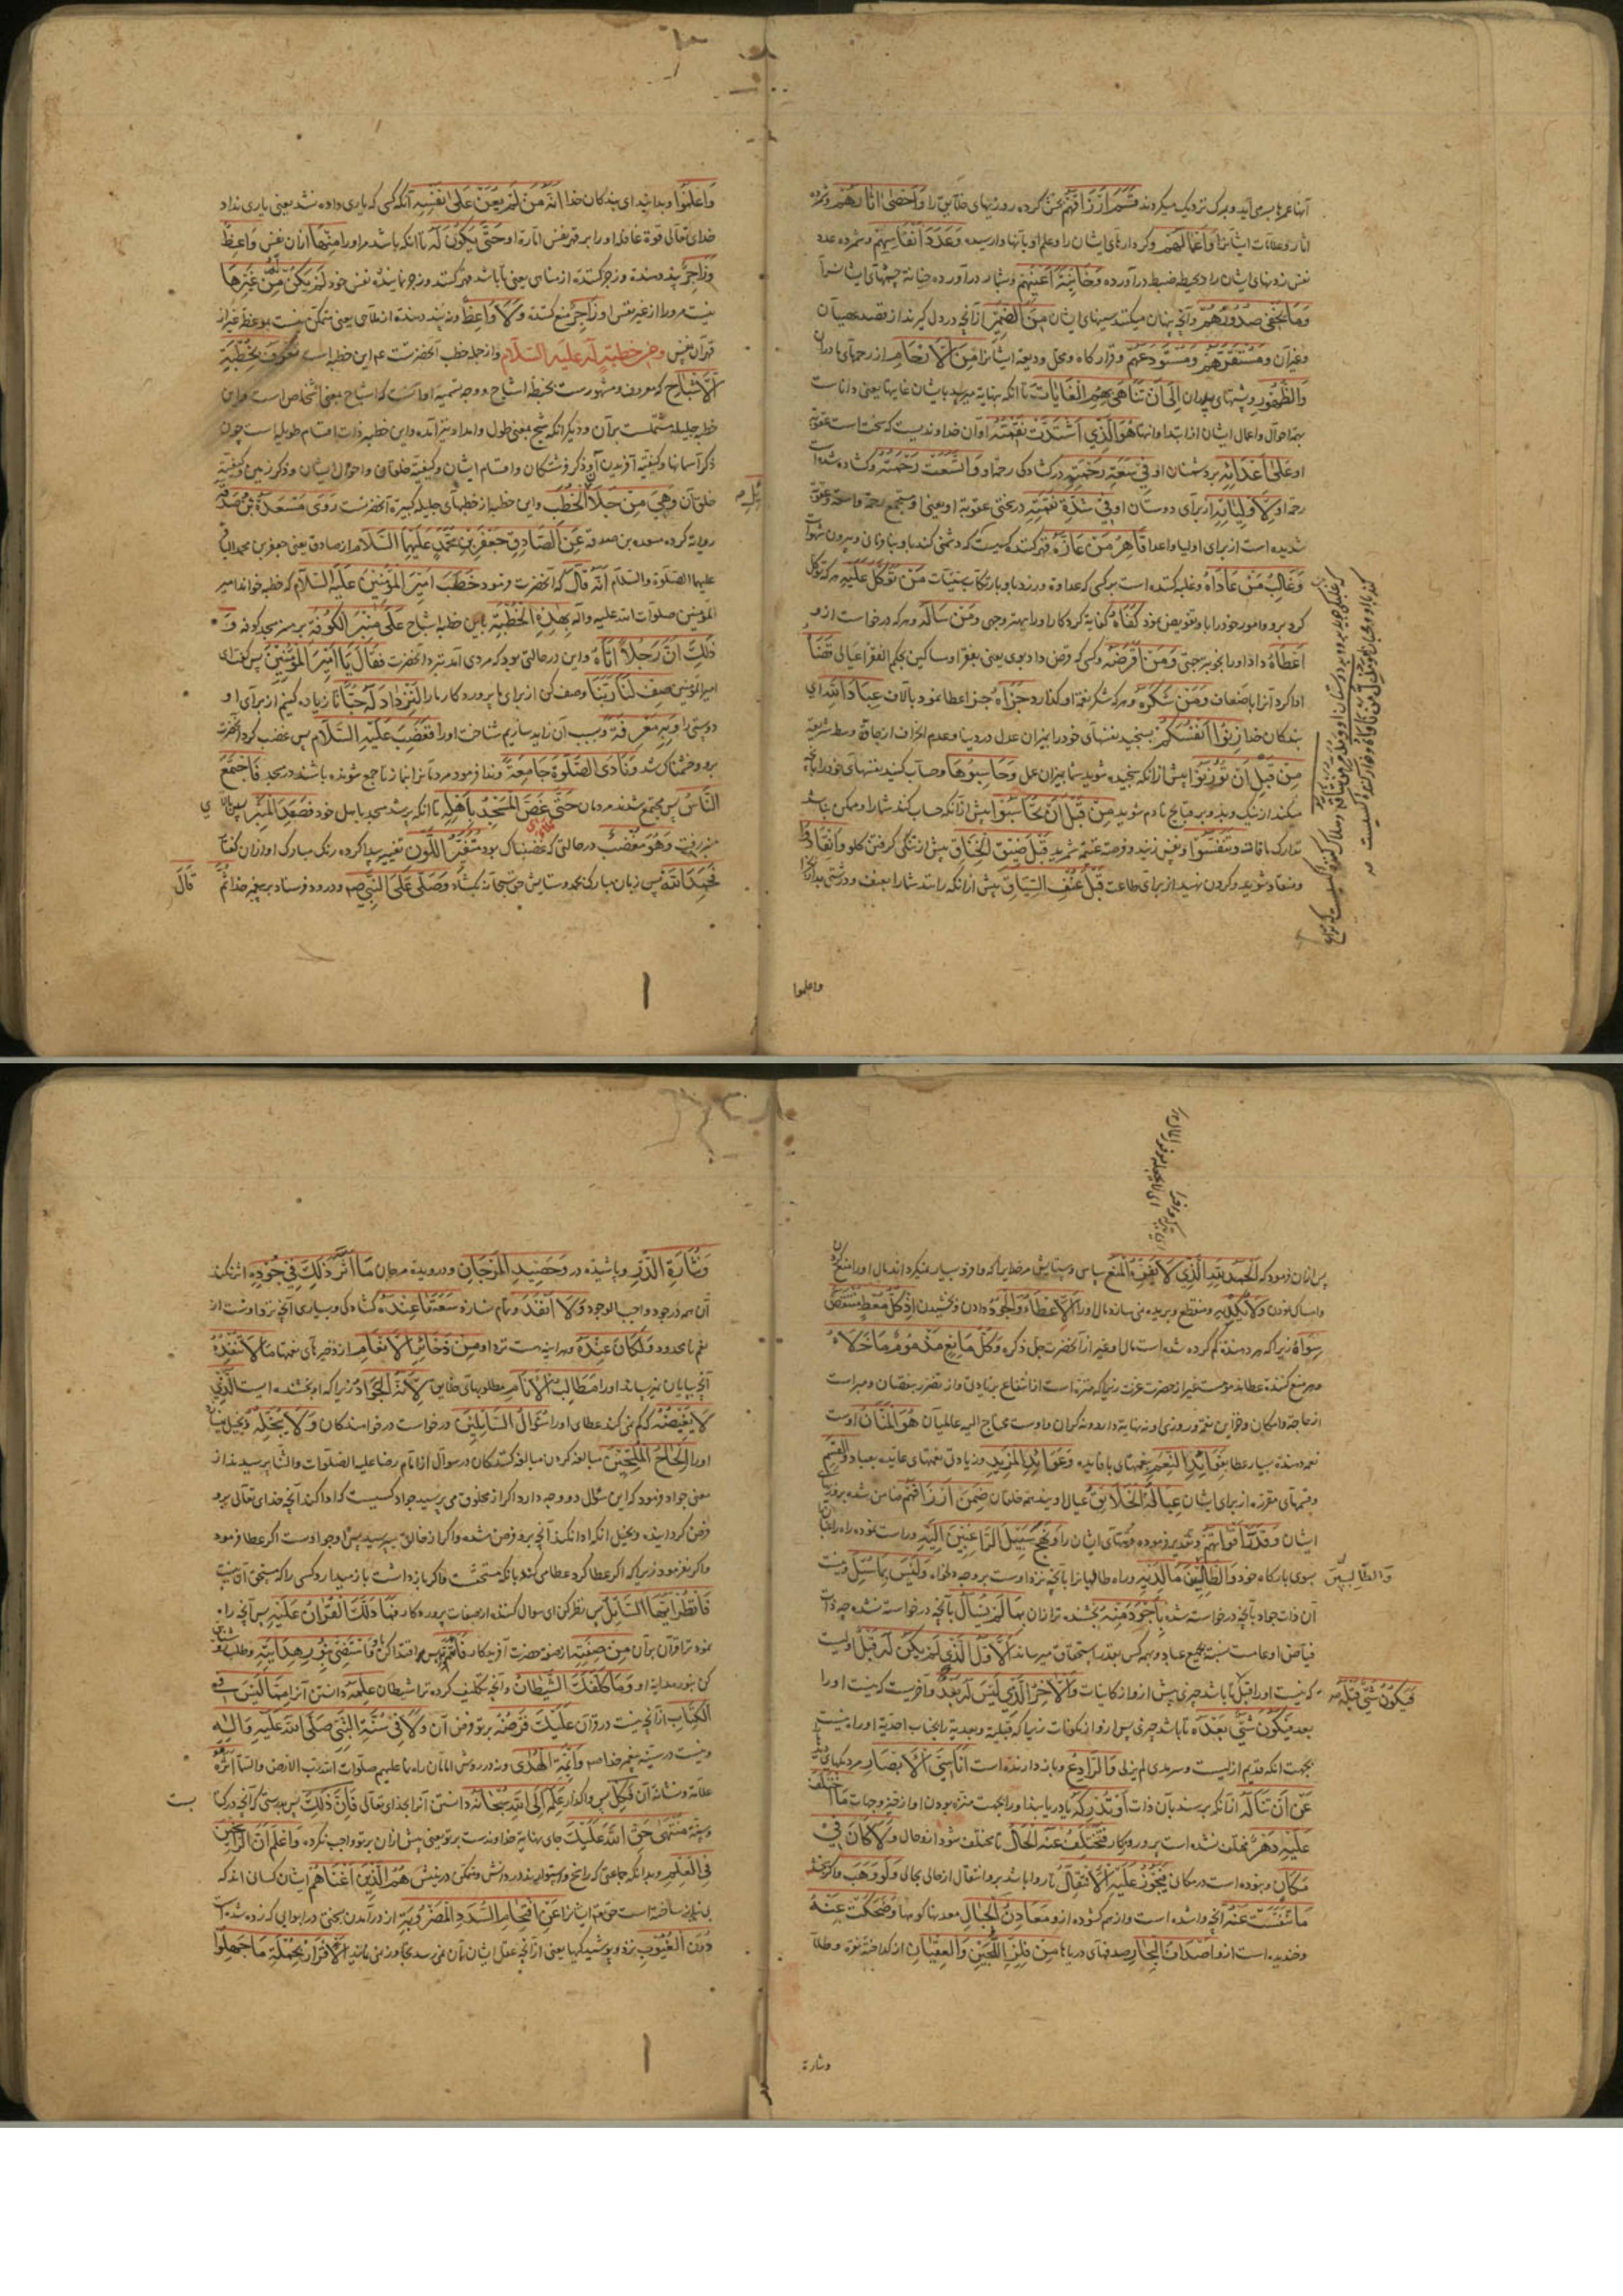 آنها عمرها بسر می آید و بمرک نزدیک میکردند قَسَمَ اَرْزَاقَهُمْ بخش کرده روزیهای خلایق را وَاَحْصٰی اٰثَارَهُمْ وشمرده
اثار وعلامات ایشانرا وَاَعْمَالَهُمْ وکردارهای ایشان را وعلم او بآنها وارسیده وَعَدَدَ اَنْفَاسِهِمْ وشمرده عدد
نفس زدنهای ایشان را و بحیطه ضبط درآورده وَخَائِنَةَ اَعْیُنِهِمْ وبشمار درآورده خیانة چشمهای ایشانرا
وَمَا تُخْفٖی صُدُورُهُمْ وآنچه پنهان میکند سینهای ایشان مِنَ الضَّمٖیرِ از آنچه در دل کیرند از قصد عصیان
وغیرآن وَمُسْتَقَرَّهُمْ وَمُسْتَوْدَعَهُمْ وقرارکاه ومحل ودیعة ایشانرا مِنَ الْاَرْحَامِ از رحمهای مادران
وَالظُّهُورِ وپشتهای پدران اِلٰی اَنْ تَتَنَاهٰی بِهِمُ الْغَایَاتُ تا آنکه بنهایة میرسد بایشان غایتها یعنی داناست
بهمه احوال واعمال ایشان از ابتدا وانتها هُوَ الَّذٖی اشْتَدَّتْ نِقْمَتُهُ او آن خداوندیست که سخت است عقوبة
او عَلٰی اَعْدَائِهٖ بر دشمنان او فٖی سَعَةِ رَحْمَتِهٖ در کشادکی رحمة او وَاتَّسَعَتْ رَحْمَتُهُ وکشاده شده است
رحمة او لِاَوْلِیَائِهٖ از برای دوستان او فٖی شِدَّةِ نِقْمَتِهٖ در سختی عقوبة او یعنی او مستجمع رحمة واسعة وعقوبة
شدیده است از برای اولیا واعدا قَاهِرُ مَنْ عَازَّهُ قهر کننده کسیست که دشمنی کند با او
وَغَالِبُ مَنْ عَادَاهُ وغلبه کننده است بر کسی که عداوة ورزد با او بارتکاب سیئات مَنْ تَوَکَّلَ عَلَیْهِ هر که توکل
کرد برو وامور خود را باو تفویض نمود کَفَاهُ کفایة کرد کار او را بهتر وجهی وَمَنْ سَاَلَهُ وهر که درخواست ازو
اَعْطَاهُ داد او را بخوبتر جهتی وَمَنْ اَقْرَضَهُ وکسی که قرض داد بوی یعنی بفقرا ومساکین بحکم الفقراء عیالی قَضَاهُ
ادا کرد آنرا باضعاف وَمَنْ شَکَرَهُ وهر که شکر نعمة او کذارد جَزَاهُ جزا عطا نمود عِبَادَ اللهِ ای
بندکان خدا زِنُوا اَنْفُسَکُمْ بسنجید نفسهای خود را بمیزان عدل در دنیا وعدم انحراف از جادّه وسط شریعة
مِنْ قَبْلِ اَنْ تُوزَنُوا پیش از آنکه سنجیده شوید شما بمیزان عمل وَحَاسِبُوهَا وحساب کنید نفسهای خود را بآنچه
میکند از نیک وبد وبر قبایح نادم شوید مِنْ قَبْلِ اَنْ تُحَاسَبُوا پیش از آنکه حساب کنند شما را وممکن نباشد
تدارک مافات وَتَنَفَّسُوا ونفس زنید وفرصة غنیمة شمرید قَبْلَ ضٖیقِ الْخِنَاقِ پیش از تنکی کرفتن کلو وَانْقَادُوا
ومنقاد شوید وکردن نهید از برای طاعت قَبْلَ عُنْفِ السِّیَاقِ پیش از آنکه رانند شما را بعنف ودرشتی بدار جزا
واعلموا
وَاعْلَمُوا وبدانید ای بندکان خدا اَنَّهُ مَنْ لَمْ یُعَنْ عَلٰی نَفْسِهٖ آنکه کسی که یاری داده نشد یعنی یاری نداد
خدای تعالی قوة عاقله او را بر قهر نفس امارة او حَتّٰی یَکُونَ لَهُ تا آنکه باشد مر او را مِنْهَا از آن نفس وَاعِظٌ
وَزَاجِرٌ پند دهنده وزجر کننده از مناهی لَمْ یَکُنْ لَهُ مِنْ غَیْرِهَا
نیست مر او را از غیر نفس او زَاجِرٌ منع کننده وَلَا وَاعِظٌ ونه پند دهنده
قرآن نفس وَمِنْ خُطْبَةٍ لَهُ عَلَیْهِ السَّلَام واز جمله خطب آنحضرتست عم این خطبه است تُعْرَفُ بِخُطْبَةِ
الْاَشْبَاحِ که معروف ومشهورست بخطبهٔ اشباح ووجه تسمیهٔ او آنست که اشباح بمعنی اشخاص است واین
خطبه جلیله مشتملست بر آن وذکر آنکه شبح بمعنی طول وامداد نیز آمده واین خطبه ذات اقسام طویله است چون
ذکر آسمانها وکیفیّة آفریدن آن وذکر فرشتکان واقسام ایشان وکیفیّة خلقتان واحوال ایشان وذکر زمین وکیفیّة
خلق آن وَهِیَ مِنْ جَلَائِلِ الْخُطَبِ واین خطبه از خطبهای جلیله کبیرة آنحضرتست رَوٰی مَسْعَدَةُ بْنُ صَدَقَةَ
روایة کرده مسعدة بن صدقة عَنِ الصَّادِقِ جَعْفَرِ بْنِ مُحَمَّدٍ عَلَیْهِمَا السَّلَام از صادق یعنی جعفر بن محمد الباقر
علیهما الصلوة والسلام اَنَّهُ قَالَ که آنحضرت فرمود خَطَبَ اَمٖیرُ الْمُؤْمِنٖینَ عَلَیْهِ السَّلَام که خطبه خواند امیر
المؤمنین صلوات الله علیه وآله بِهٰذِهِ الْخُطْبَةِ باین خطبه اشباح عَلٰی مِنْبَرِ الْکُوفَةِ بر منبر مسجد کوفه وَ
ذٰلِکَ اَنَّ رَجُلًا اَتَاهُ واین در حالتی بود که مردی آمد بنزد آنحضرت فَقَالَ یَا اَمٖیرَ الْمُؤْمِنٖینَ پس کفت ای
امیرالمؤمنین صِفْ لَنَا رَبَّنَا وصف کن از برای ما پروردکار ما را لِنَزْدَادَ لَهُ حُبًّا تا زیاده کنیم از برای او
دوستی را وَبِهٖ مَعْرِفَةً وبسبب آن زاید سازیم شناخت او را فَغَضِبَ عَلَیْهِ السَّلَام پس غضب کرد آنحضرت
برو وخشمناک شد وَنَادٰی الصَّلٰوةَ جَامِعَةً وندا فرمود مردمانرا بنماز تا جمع شونده باشند در مسجد فَاجْتَمَعَ
النَّاسُ پس مجتمع شدند مردمان حَتّٰی غَصَّ الْمَسْجِدُ بِاَهْلِهٖ تا آنکه پر شد مسجد باهل خود فَصَعِدَ الْمِنْبَرَ پس بالای
منبر رفت وَهُوَ مُغْضَبٌ در حالتی که غضبناک بود مُتَغَیِّرُ اللَّوْنِ تغییر پیدا کرده رنک مبارک او
فَحَمِدَ اللهَ پس زبان مبارک بحمد وستایش حق سبحانه بکشاد وَصَلّٰی عَلَی النَّبِیِّ صم ودرود فرستاد بر پیغمبر خدا ثُمَّ
قَالَ
پس از آن فرمود که اَلْحَمْدُ لِلهِ الَّذٖی لَا یَفِرُهُ الْمَنْعُ سپاس وستایش مر خدایرا که وافر وبسیار نمیکرداند مال او را منع کردن
وامساک نمودن وَلَا یُکْدٖیهِ ومنقطع وبریده نمی سازد مال او را الْاِعْطَاءُ وَالْجُودُ دادن وبخشیدن اِذْ کُلُّ مُعْطٍ مُنْتَقِصٌ
سِوَاهُ زیرا که هر دهنده کم کرده شده است مال او غیر از آنحضرت جل ذکره وَکُلُّ مَانِعٍ مَذْمُومٌ مَا خَلَاهُ
وهر منع کننده عطا مذمومست غیر از حضرت عزت زیرا که منزه است از انتفاع بزیادتی واز تضرر بنقصان ومبراست
از حاجة وامکان وخزاین نعمة وروزی او نه نهایة دارد ونه کران واوست محتاج الیه عالمیان هُوَ الْمَنَّانُ اوست
نعمت دهنده بسیار عطا بِفَوَائِدِ النِّعَمِ بنعمتهای با فایده وَعَوَائِدِ الْمَزٖیدِ وزیادتی نعمتهای عایده بعباد وَالْقِسَمِ
وقسمهای مقرره از برای ایشان عِیَالُهُ الْخَلَائِقُ عیال اویند همه خلقان ضَمِنَ اَرْزَاقَهُمْ ضامن شده بروزیهای
ایشان وَقَدَّرَ اَقْوَاتَهُمْ وتقدیر فرموده قوتهای ایشان را وَنَهَجَ سَبٖیلَ الرَّاغِبٖینَ اِلَیْهِ وراست نموده راه راغبان
بسوی بارکاه خود وَالطَّالِبٖینَ مَا لَدَیْهِ وراه طالبانرا بآنچه نزد اوست بر وجه دلخواه وَلَیْسَ بِمَا سُئِلَ ونیست
وَالطَّالِبٖینَ
آن ذات جواد بآنچه درخواسته شده بِاَجْوَدَ مِنْهُ بخشنده تر از آن بِمَا لَمْ یُسْاَلْ بآنچه درخواسته نشده چه ذات
فیاض او عام است نسبت بجمیع عباد وبهر کس بقدر استحقاق میرساند الْاَوَّلُ الَّذٖی لَمْ یَکُنْ لَهُ قَبْلٌ اولیست
که نیست او را قبل تا باشد چیزی پیش ازو از کاینات وَالْاٰخِرُ الَّذٖی لَیْسَ لَهُ بَعْدٌ وآخریست که نیست او را
فَیَکُونَ شَیْءٌ قَبْلَهُ
بعد فَیَکُونَ شَیْءٌ بَعْدَهُ تا باشد چیزی پس ازو از مکونات زیرا که قبلیة وبعدیة را بجناب احدیة او راه نیست
بجهت آنکه قدیم ازلیست وسرمدی لم یزلی وَالرَّادِعُ وباز دارنده است اَنَاسِیَّ الْاَبْصَارِ مردمکهای دیدها را
عَنْ اَنْ تَنَالَهُ از آنکه برسند بآن ذات اَوْ تُدْرِکَهُ یا دریابند او را بجهت منزه بودن او از حیز وجهات مَا اخْتَلَفَ
عَلَیْهِ دَهْرٌ مختلف نشده است برو روزکار فَتَخْتَلِفَ عَنْهُ الْحَالُ تا مختلف شود ازو حال وَلَا کَانَ فٖی
مَکَانٍ ونبوده است در مکانی فَیَجُوزَ عَلَیْهِ الْاِنْتِقَالُ تا روا باشد برو انتقال از حالی بحالی وَلَوْ وَهَبَ واکر بخشد
مَا تَنَفَّسَتْ عَنْهُ آنچه واشده است واز هم کشوده ازو مَعَادِنُ الْجِبَالِ معدنها کوهها وَضَحِکَتْ عَنْهُ
وخندیده است ازو اَصْدَافُ الْبِحَارِ صدفهای دریاها مِنْ فِلِزِّ اللُّجَیْنِ وَالْعِقْیَانِ از کداخته نقره وطلا
ونثارة
وَنُثَارَةِ الدُّرِّ وپاشیده در وَحَصٖیدِ الْمَرْجَانِ ودرویده مرجان مَا اَثَّرَ ذٰلِکَ فٖی جُودِهٖ اثر نکند
آن همه در جود واجب الوجود وَلَا اَنْفَدَ وتمام نسازد سَعَةَ مَا عِنْدَهُ کشادکی وبسیاری آنچه نزد اوست از
نعم نامحدود وَلَکَانَ عِنْدَهُ وهر آینه هست نزد او مِنْ ذَخَائِرِ الْاِنْعَامِ از ذخیرهای نعمتها مَا لَا تُنْفِدُهُ
آنچه بپایان نمیرساند او را مَطَالِبُ الْاَنَامِ مطلوبهای خلایق لِاَنَّهُ الْجَوَادُ زیرا که او بخشنده ایست الَّذٖی
لَا یَغٖیضُهُ که کم نمی کند عطای او را سُؤَالُ السَّائِلٖینَ درخواست درخواهندکان وَلَا یُبْخِلُهُ وبخیل نمی سازد
او را اِلْحَاحُ الْمُلِحّٖینَ مبالغه کردن مبالغه کنندکان در سوال از امام رضا علیه الصلوات والثنا پرسیدند از
معنی جواد فرمود که این سؤال دو وجه دارد اکر از مخلوق می پرسید جواد کسیست که ادا کند آنچه خدای تعالی برو
فرض کردانیده وبخیل آنکه ادا نکند آنچه برو فرض شده واکر از خالق میپرسید پس او جوادست اکر عطا فرمود
واکر نفرمود زیرا که اکر عطا کرد عطا می کند بآنکه مستحقست واکر باز داشت باز میدارد کسی را که مستحق آن نیست
فَانْظُرْ اَیُّهَا السَّائِلُ پس نظر کن ای سوال کننده از صفات پروردکار فَمَا دَلَّکَ الْقُرْاٰنُ عَلَیْهِ پس آنچه راه
نمود ترا قرآن بر آن مِنْ صِفَتِهٖ از صفة حضرت آفریدکار فَائْتَمَّ بِهٖ پس اقتدا کن باو وَاسْتَضِئْ بِنُورِ هِدَایَتِهٖ وطلب روشنی
کن بنور هدایة او وَمَا کَلَّفَکَ الشَّیْطَانُ وآنچه تکلیف کرده ترا شیطان عِلْمَهُ دانستن آنرا مِمَّا لَیْسَ فٖی
الْکِتَابِ از آنچه نیست در قرآن عَلَیْکَ فَرْضُهُ بر تو فرض آن وَلَا فٖی سُنَّةِ النَّبِیِّ صَلَّی اللهُ عَلَیْهِ وَاٰلِهٖ
ونیست در سنّة پیغمبر خدا صم وَاَئِمَّةِ الْهُدٰی ونه در روش امامان راه نما علیهم صلوات الله رب الارض والسما اَثَرُهُ
علامة ونشانهٔ آن فَکِلْ پس واکذار عِلْمَهُ اِلَی اللهِ سُبْحَانَهُ دانستن آنرا بخدای تعالی فَاِنَّ ذٰلِکَ پس بدرستی که آنچه در کتاب
وسنّة مُنْتَهٰی حَقِّ اللهِ عَلَیْکَ جای نهایة حق خداوندست بر تو یعنی پیش از آن بر تو واجب نکرده وَاعْلَمْ اَنَّ الرَّاسِخٖینَ
فِی الْعِلْمِ وبدانکه جماعتی که راسخ واستوارند در دانش ومتمکن در بینش هُمُ الَّذٖینَ اَغْنَاهُمْ ایشان کسانی اند که
بی نیاز ساخته است حق تعالی ایشانرا عَنِ اقْتِحَامِ السُّدَدِ الْمَضْرُوبَةِ از درآمدن بسختی در ابوابی که زده شده است
دُونَ الْغُیُوبِ نزد پوشیدکیها یعنی از آنچه عقل ایشان بآن نمی رسد الْاِقْرَارُ بِجُمْلَةِ مَا جَهِلُوا